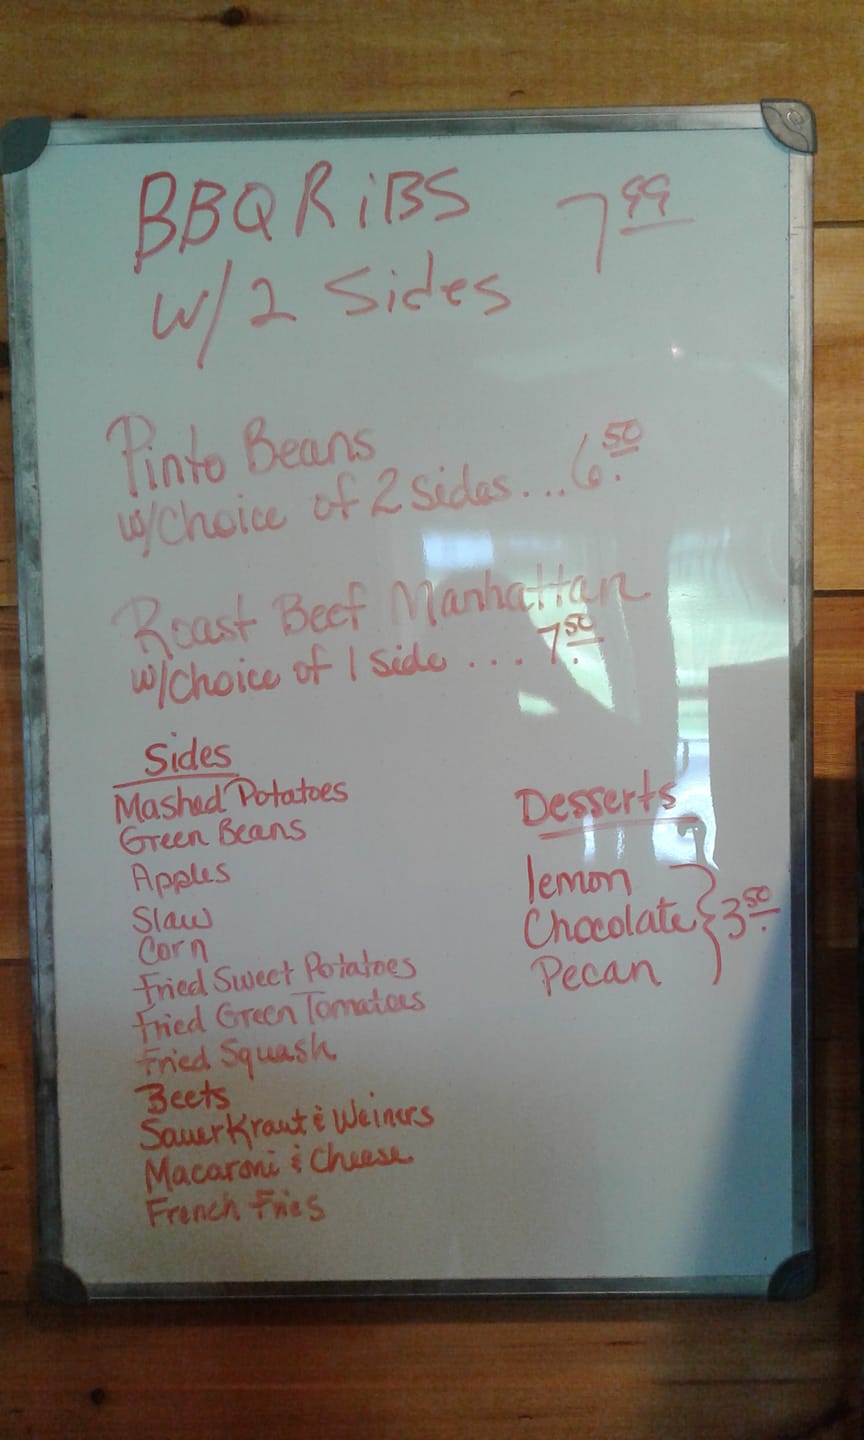 BBQ RiBS 7.99
w/2 Sides
Pinto Beans
w/Choice of 2 sides... 6.50
Roast Beef Manhattan
w/Choice of 1 side .... 7.50
Sides
Mashed Potatoes
Green Beans
Apples
Slaw
Corn
Fried Sweet Potatoes
Fried Green Tomatoes
Fried Squash
Beets
SauerKraut & Weiners
Macaroni & Cheese
French Fries
Desserts
lemon
Chocolate 3.50
Pecan